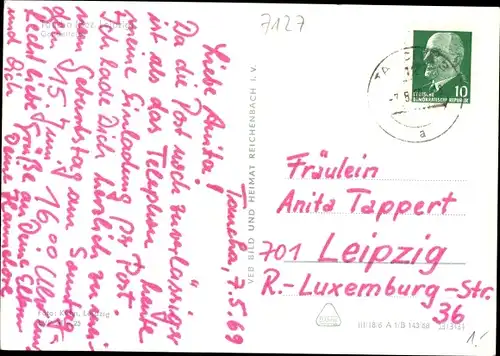 7127
Taucha, 7.5.69
Liebe Anita!
Da die Post noch zuverlässiger
ist als das Telephon heute
meine Einladung per Post.
Ich lade Dich herzlich zu mei-
nem Geburtstag am Sonntag
den 15. Juni 16.00 Uhr ein.
Recht liebe Grüße an Deine Eltern
und Dich Deine Hannelore
Foto: Kühn, Leipzig
VEB BILD UND HEIMAT REICHENBACH I. V.
DEUTSCHE
DEMOKRATISCHE REPUBLIK
10
a
Fräulein
Anita Tappert
701 Leipzig
R.-Luxemburg-Str.
36
III/18/6 A 1/B 143/68
1.-